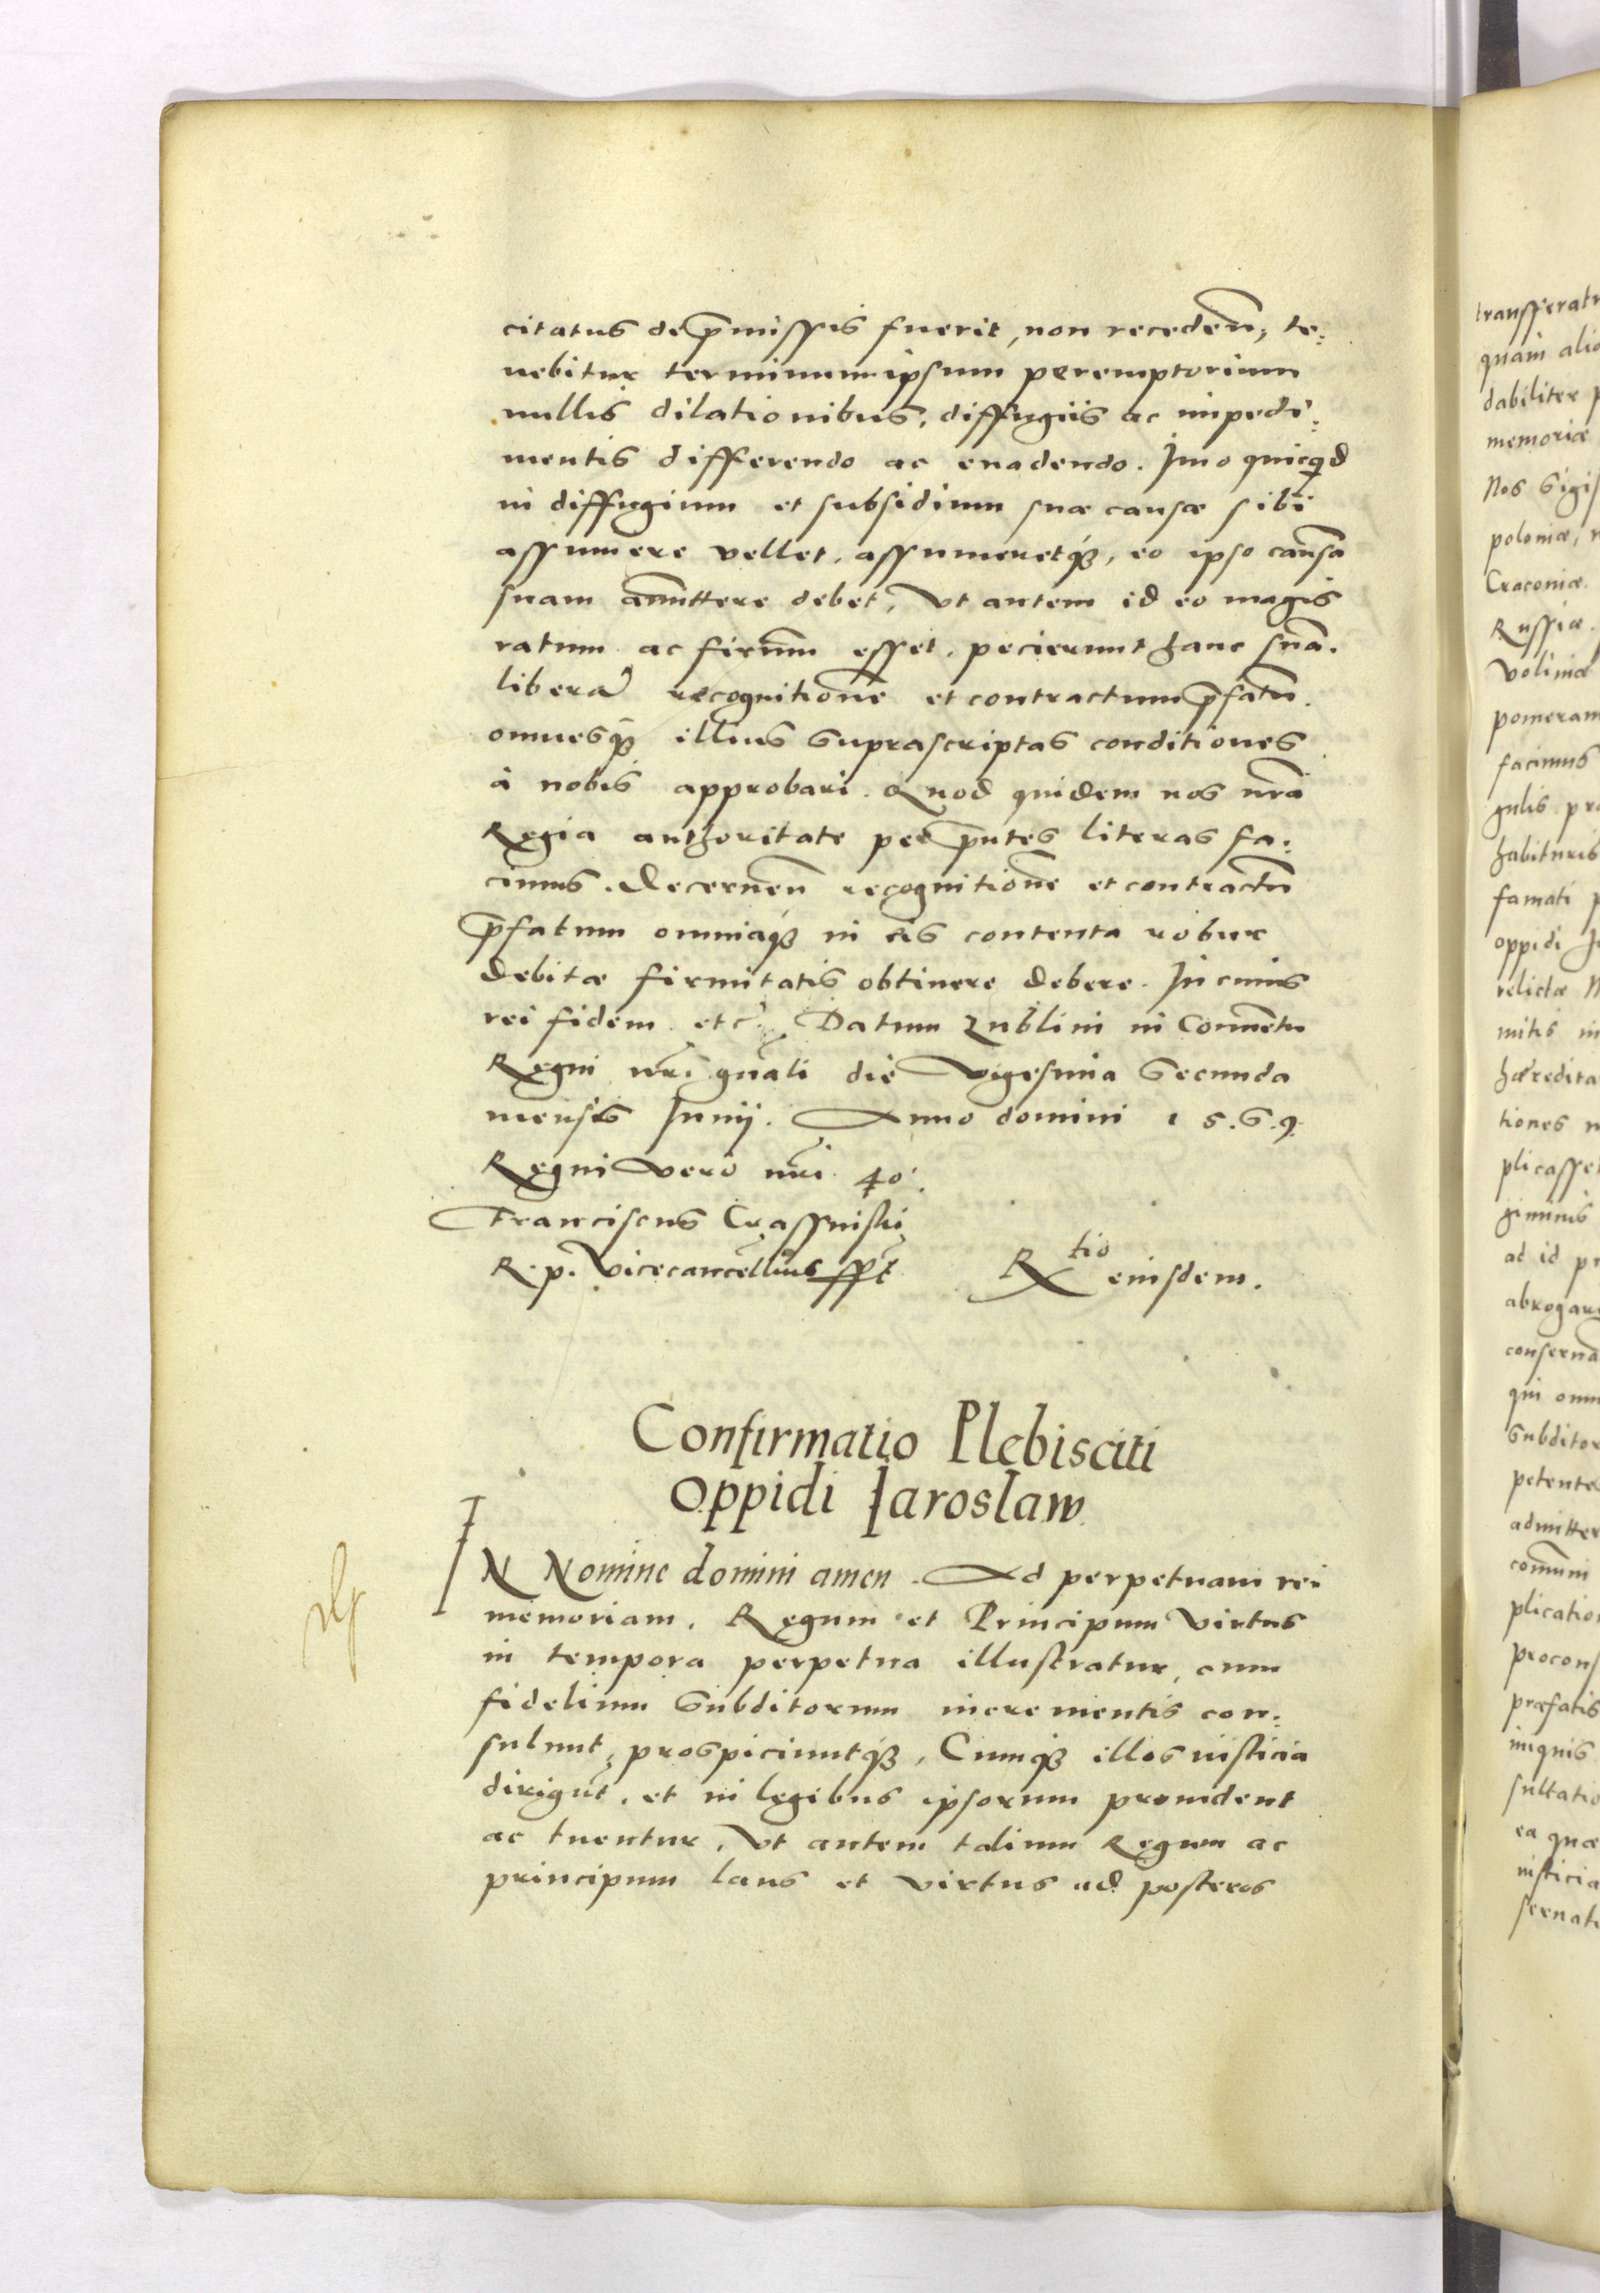 citatus de p̄missis fuerit, non recedeñ, te:
nebitur terminum ipsum peremptorium
nullis dilationibus, diffugiis ac impedi:
mentis differendo ac euadendo. Imo quicq̄d
in diffugium et subsidium suæ causæ sibi
assumere vellet, assumeretq́3, eo ipso causā
suam amittere debet, Vt autem id eo magis
ratum ac firmm̄ esset, pecierunt hanc suā
liberā recognitionē et contractum p̄fatū
omnesq́3 illius suprascriptas conditiones
à nobis approbari. Quod quidem nos nr̄a
Regia authoritate per p̄ntes literas fa:
cimus. Decerneñ recognitionē et contractū
p̄fatum omniaq́3 in eis contenta robur
debitæ firmitatis obtinere debere. In cuius
rei fidem etc̄. Datum Lublini in Conuētu
Regni nr̄i gn̄ali die Vigesima Secunda
mensis Junij. Anno domini 1569.
Regni vero nr̄i 40.
Franciscus Crassinski
R. p. Vicecancellrius sspt
Rtio eiusdem.
Confirmatio Plebisciti
Oppidi Jaroslaw.
IN Nomine domini amen. Ad perpetuam rei
memoriam. Regum et Principum virtus
in tempora perpetua illustratur, cum
fidelium Subditorum incrementis con:
sulunt, prospiciuntq́3, Cumq́3 illos iusticia
dirigūt, et in legibus ipsorum prouident
ac tuentur, Vt autem talium Regum ac
principum laus et virtus ad posteros
transferat
quam alio
dabiliter p
memoriæ
Nos Sigis
poloniæ,
Cracouiæ
Russiæ.
Voliniæ
pomeran
facimus
gulis pr
habituris
famati p
oppidi J
relictæ
mitis in
hæredita
tiones n
plicasset
ad id pr
abrogar
conseruā
qui omn
Subditor
petente
admitter
com̄uni
plicatio
procons
præfatis
iniquis
sultatio
ea quæ
iusticia
seruat